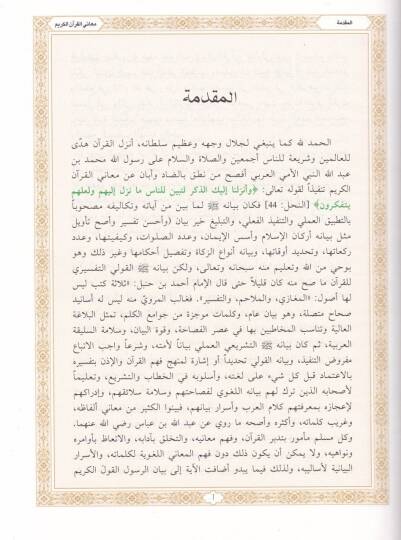 المقدمة
معاني القرآن الكريم
المقدمة
الحمد لله كما ينبغي لجلال وجهه وعظيم سلطانه، أنزل القرآن هدًى
للعالمين وشريعة للناس أجمعين والصلاة والسلام على رسول الله محمد بن
عبد الله النبي الأمي العربي أفصح من نطق بالضاد وأبان عن معاني القرآن
الكريم تنفيذاً لقوله تعالى: ﴿وأنزلنا إليك الذكر لتبين للناس ما نزل إليهم ولعلهم
يتفكرون﴾ [النحل: 44] فكان بيانه ﷺ لما بين من آياته وتكاليفه مصحوباً
بالتطبيق العملي والتنفيذ الفعلي، والتبليغ خير بيان (وأحسن تفسير وأصح تأويل
مثل بيانه أركان الإسلام وأسس الإيمان، وعدد الصلوات، وكيفيتها، وعدد
ركعاتها، وتحديد أوقاتها، وبيانه أنواع الزكاة وتفصيل أحكامها وغير ذلك وهو
بوحي من الله وتعليم منه سبحانه وتعالى، ولكن بيانه ﷺ القولي التفسيري
للقرآن ما صح منه كان قليلاً حتى قال الإمام أحمد بن حنبل: «ثلاثة كتب ليس
لها أصول: «المغازي، والملاحم، والتفسير». فغالب المرويّ منه ليس له أسانيد
صحاح متصلة، وهو بيان عام، وكلمات موجزة من جوامع الكلم، تمثل البلاغة
العالية وتناسب المخاطبين بها في عصر الفصاحة، وقوة البيان، وسلامة السليقة
العربية، ثم كان بيانه ﷺ التشريعي العملي بياناً لأمته، وشرعاً واجب الاتباع
مفروض التنفيذ، وبيانه القولي تحديداً أو إشارة لمنهج فهم القرآن والإذن بتفسيره
بالاعتماد قبل كل شيء على لغته، وأسلوبه في الخطاب والتشريع، وتعليماً
لأصحابه الذين ترك لهم بيانه اللغوي لفصاحتهم وسلامة سلائقهم، وإدراكهم
لإعجازه بمعرفتهم كلام العرب وأسرار بيانهم، فبينوا الكثير من معاني ألفاظه،
وغريب كلماته، وأكثره وأصحه ما روي عن عبد الله بن عباس رضي الله عنهما.
وكل مسلم مأمور بتدبر القرآن، وفهم معانيه، والتخلق بآدابه، والاتعاظ بأوامره
ونواهيه، ولا يمكن أن يكون ذلك دون فهم المعاني اللغوية لكلماته، والأسرار
البيانية لأساليبه، ولذلك فيما يبدو أضافت الآية إلى بيان الرسول القولَ الكريم
أ